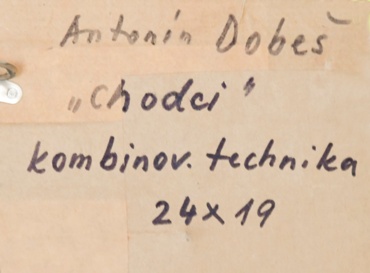 Antonín Dobeš
„Chodci"
kombinov. technika
24x19